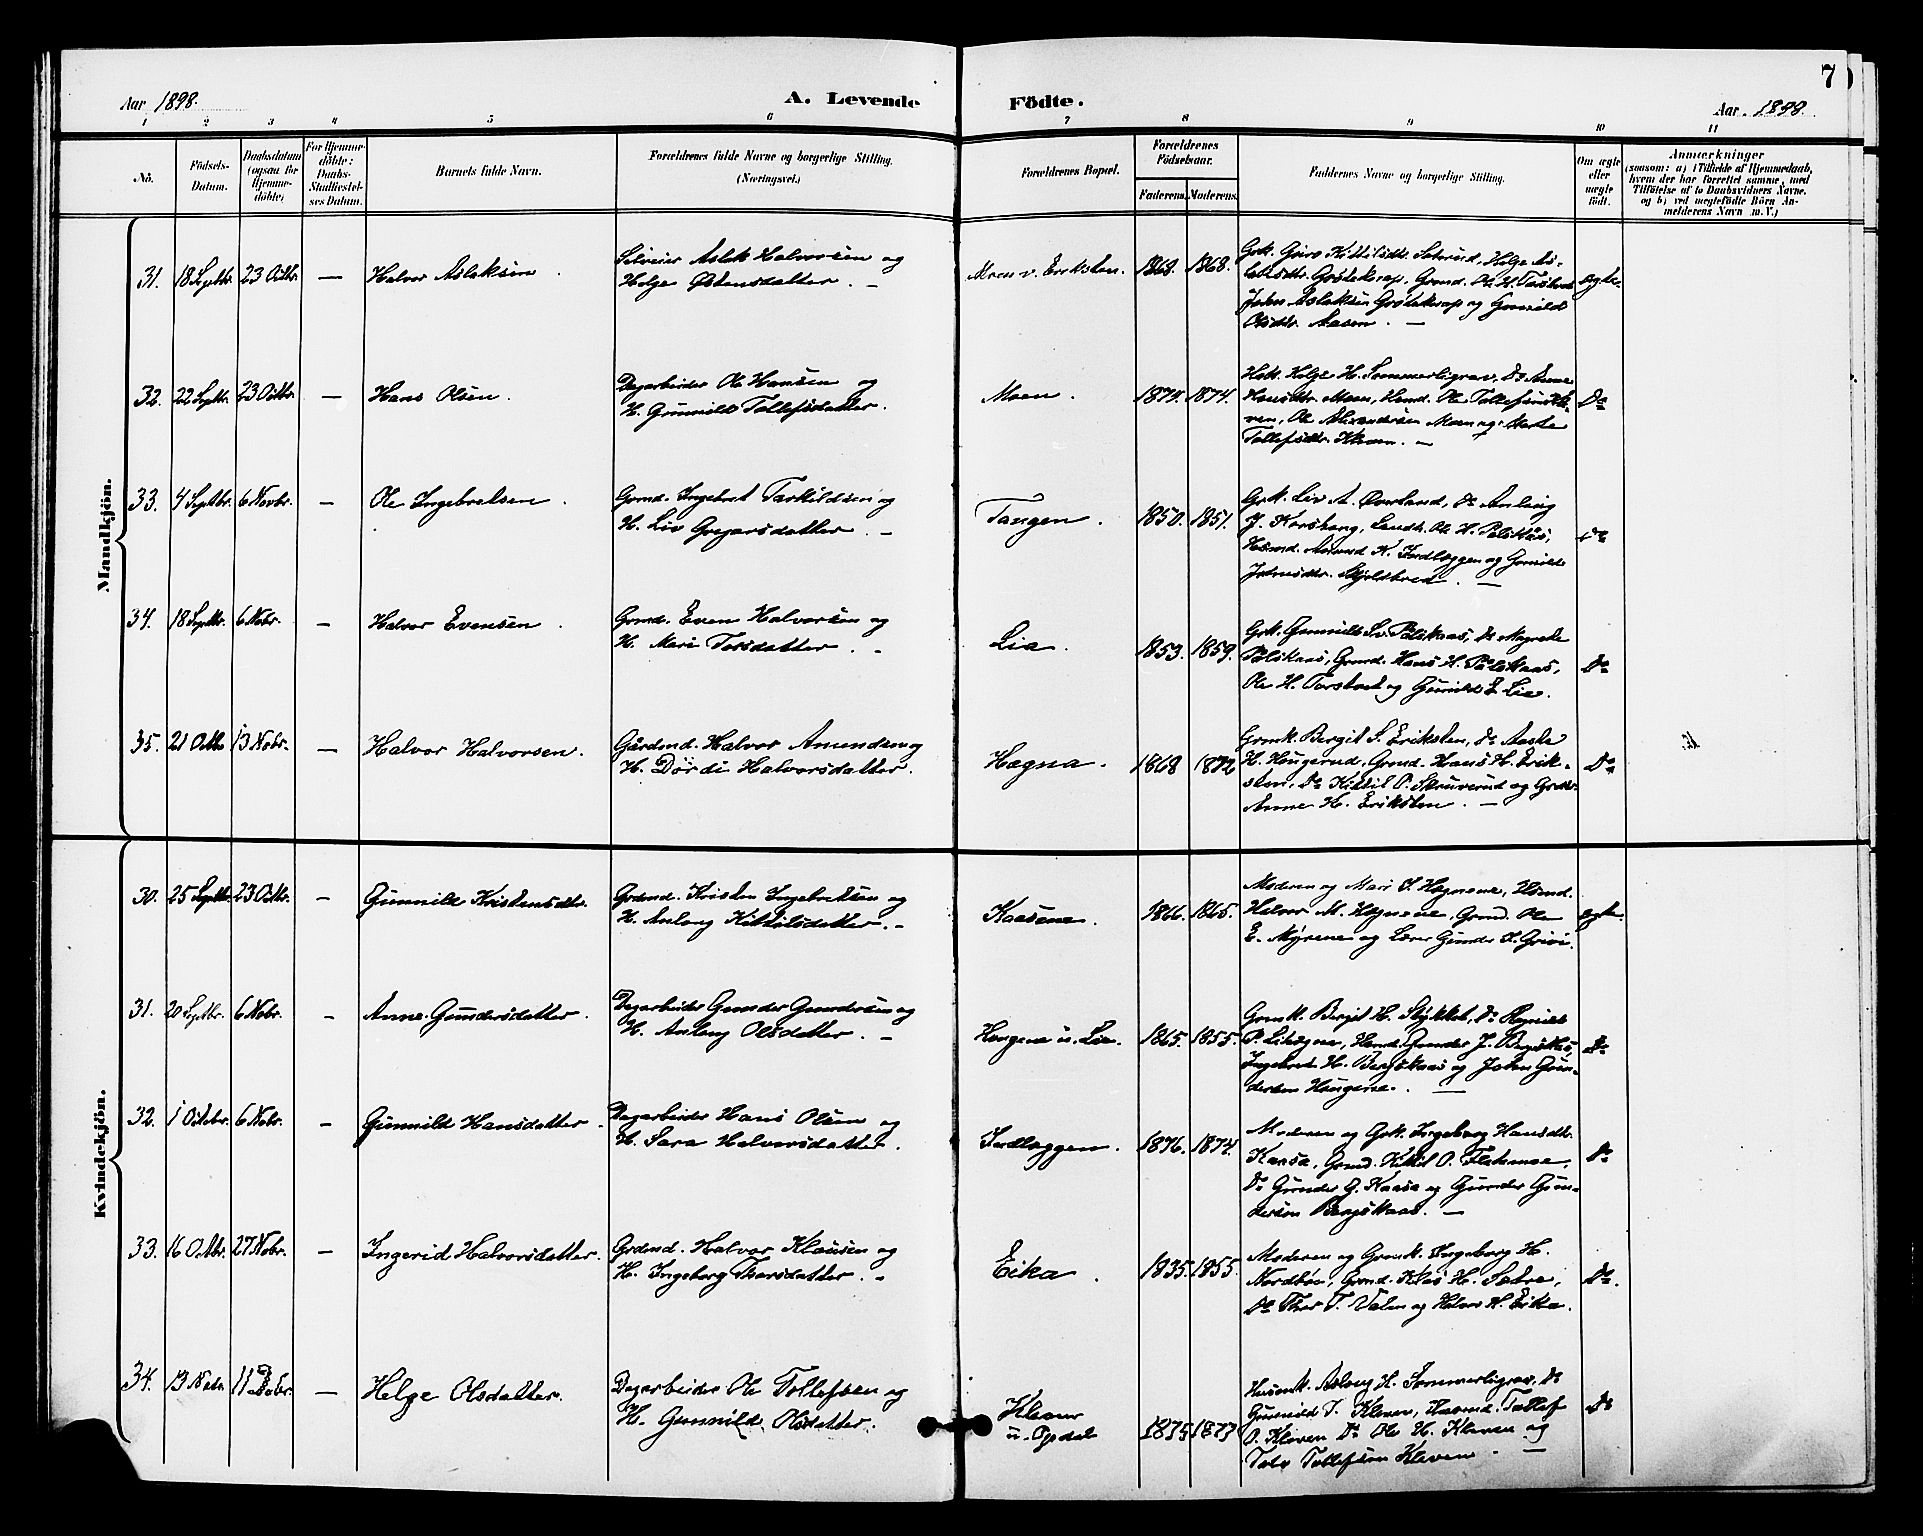 7
Aar 1898.
A. Levende
Födte.
Aar 1898.
1 2 3 4 5 6 7 8 9 10 11
No.
Födsels-Datum.
Daabsdatum (ogsaa for Hjemme-döbte)
For Hjemme-döbte: Daabs-Stadfæstel-ses Datum.
Barnets fulde Navn.
Forældrenes fulde Navne og borgerlige Stilling. (Næringsvei.)
Forældrenes Bopæl.
Forældrenes Födselsaar.
Faderens. Moderens.
Faddernes Navne og borgerlige Stilling.
Om ægte eller uægte födt.
Anmærkninger
(saasom: a) i Tilfælde af Hjemmedaab, hvem der har forrettet samme, med Tilföielse af to Daabsvidners Navne. og b) ved uægtefödte Börn An-melderens Navn m. V.)
Mandkjön.
31. 18 Septbr. 23 Octbr. — Halvor Aslaksen.
Selveier Aslak Halvorsen og
Helge Østensdatter. —
Moen v. Eriksten. 1868. 1868.
Grk. Guro Kittilsdtr. Saterud, Helge As-
laksdtr. Grøtekrap, Grmd. Ole H.
John Aslaksen Grøtekrap og Gunnild
Olsdtr. Aasen. —
ægte.
32. 22 Septbr. 23 Octbr. — Hans Olsen.
Dagarbeider Ole Hansen og
H. Gunnild Tollefsdatter.
Moen. 1874. 1874.
Helge H. Sommerligrav, Do Anne
Hansdtr. Moen, Hsmd. Ole Tollefsen Kle-
ven, Ole Alexandersen Moen og
Tollefsdtr. Kleven. —
Do
33. 4 Septbr. 6 Novbr. — Ole Ingebretsen.
Grmd. Ingebret Tarkildsen og
H. Liv Gregarsdatter. —
Tangen. 1850. 1851.
Grk. Liv A. Overland, Do Anlaug
J. Korshaug, Landh. Ole H. Pålskås,
Husmd. Amund K. Jordlæggen og Gunnild
Johnsdtr. Skjelsbred. —
Do
34. 18 Septbr. 6 Nobr. — Halvor Evensen.
Grmd. Even Halvorsen og
H. Mari Torsdatter. —
Lia. 1853. 1859.
Grk. Gunnild Sv. Pålskaas, Do Margrete
Pålskaas, Grmd. Hans H. Pålskaas,
Ole H. Torstvet og Gunild E. Lia.
Do
35. 21 Octbr. 13 Nobr. — Halvor Halvorsen.
Gårdmd. Halvor Amundsen og
H. Dördi Halvorsdatter.
Hægna. 1868 1872
Grmk. Bergit S. Eriksten, Do Aaste
H. Haugerud, Grmd. Hans H. Erik-
sten, Do Kittil O. Skruverud og
Anne H. Eriksten. —
Do
Kvindekjön.
30. 25 Septbr. 23 Octbr. — Gunnild Kristensdtr.
Grdmd. Kristen Ingebretsen og
H. Anlaug Kittilsdatter. —
Kaasene. 1866. 1865.
Moderen og Mari S. Hægnene, Husmd.
Halvor M. Hægnene, Grmd. Ole
E. Myrene og Lærer Gunder S. Grivi.
ægte.
31. 20 Septbr. 6 Nobr. — Anne Gundersdatter.
Dagarbeider Gunder Gundersen og
H. Anlaug Olsdatter. —
Haugene u. Lia. 1865. 1855.
Grmk. Bergit H. Stykket, Do Ragnild
P. Lihægne, Hsmd. Gunder J. Bergskås,
Ingebret H. Bergskaas og John Gun-
dersen Haugene. —
Do
32. 1 Octobr. 6 Nobr. — Gunnild Hansdatter.
Dagarbeider Hans Olsen og
H. Sara Halvorsdatter.
Jordlæggen. 1876. 1874.
Moderen og Grk. Ingeborg Hansdtr.
Kaasa, Grmd. Kittil O. Flatamoe,
Do Gunder G. Kaasa og Gunder Gun-
dersen Bergskaas. —
Do
33. 16 Octbr. 27 Nobr. — Ingerid Halvorsdatter.
Grdmd. Halvor Klausen og
H. Ingeborg Thorsdatter. —
Eika. 1835. 1855.
Moderen og Grmk. Ingeborg H.
Nordbøn, Grmd. Klas H. Sætre,
Do Thor T. Valen og Halvor H. Eika.
Do.
34. 13 Nobr. 11 Debr. — Helge Olsdatter.
Dagarbeider Ole Tollefsen og
H. Gunnild Olsdatter.
Kleven
u. Opdal 1875 1873
Husmk. Aslaug H. Sommerligrav, Do
Gunnild T. Kleven, Husmd. Tollef
O. Kleven Do Ole H. Kleven og
Tollefsen Kleven. —
Do